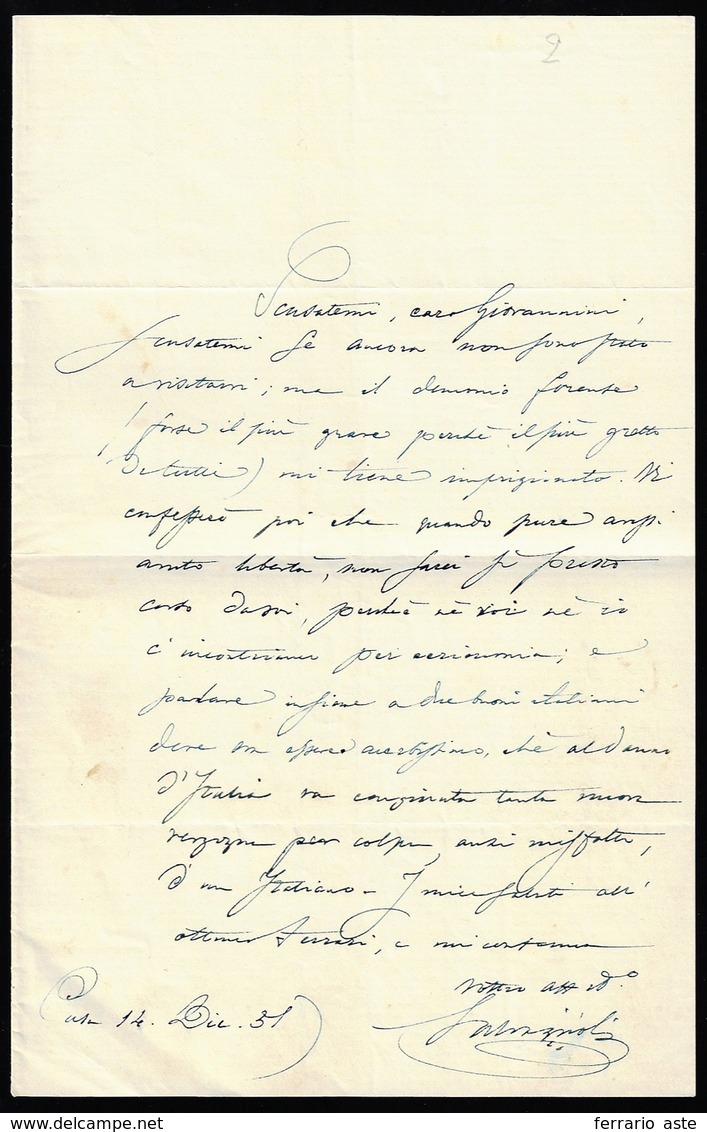 2
Scusatemi, caro Giovannini,
scusatemi se ancora non sono stato
a visitarvi; ma il demonio forense
(forse il più grave perché il più gretto
di tutti) mi tiene imprigionato. Vi
confesserò poi che quando pure avessi
avuto libertà, non sarei sì presto
corso da voi, perché nè voi nè io
c'incontriamo per cerimonia; e
parlare insieme a due buoni italiani
deve ora essere acerbissimo, chè al danno
d'Italia va congiunta tanta nuova
vergogna per colpa, anzi misfatto,
d'un Italiano - I miei saluti all'
ottimo Ferrari, e mi confermo
Vostro
Casa 14. Dic. 51
Salvagnoli
ferrario aste